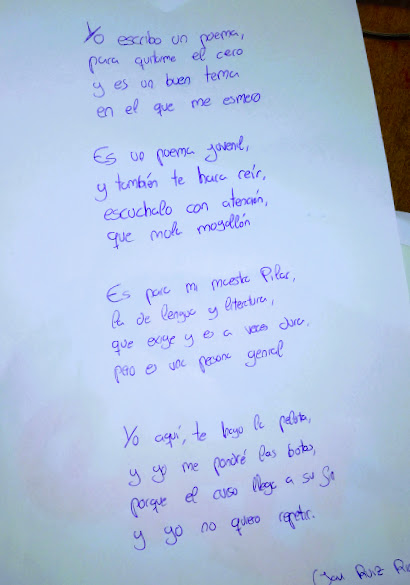 Yo escribo un poema,
para quitarme el cero
y es un buen tema
en el que me esmero
Es un poema juvenil,
y también te hara reír,
escuchalo con atención,
que mola mogollón
Es para mi maestra Pilar,
la de lengua y literatura,
que exige y es a veces dura,
pero es una persona genial
Yo aquí, te hago la pelota,
y yo me pondré las botas,
porque el curso llega a su fin
y yo no quiero repetir.
Ruiz